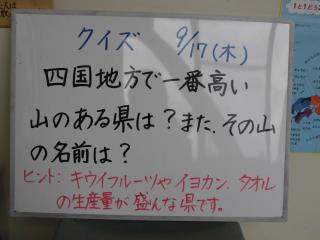 クイズ 9/17(木)
四国地方で一番高い
山のある県は?また、その山
の名前は?
ヒント:キウイフルーツやイヨカン、タオル
の生産量が盛んな県です。